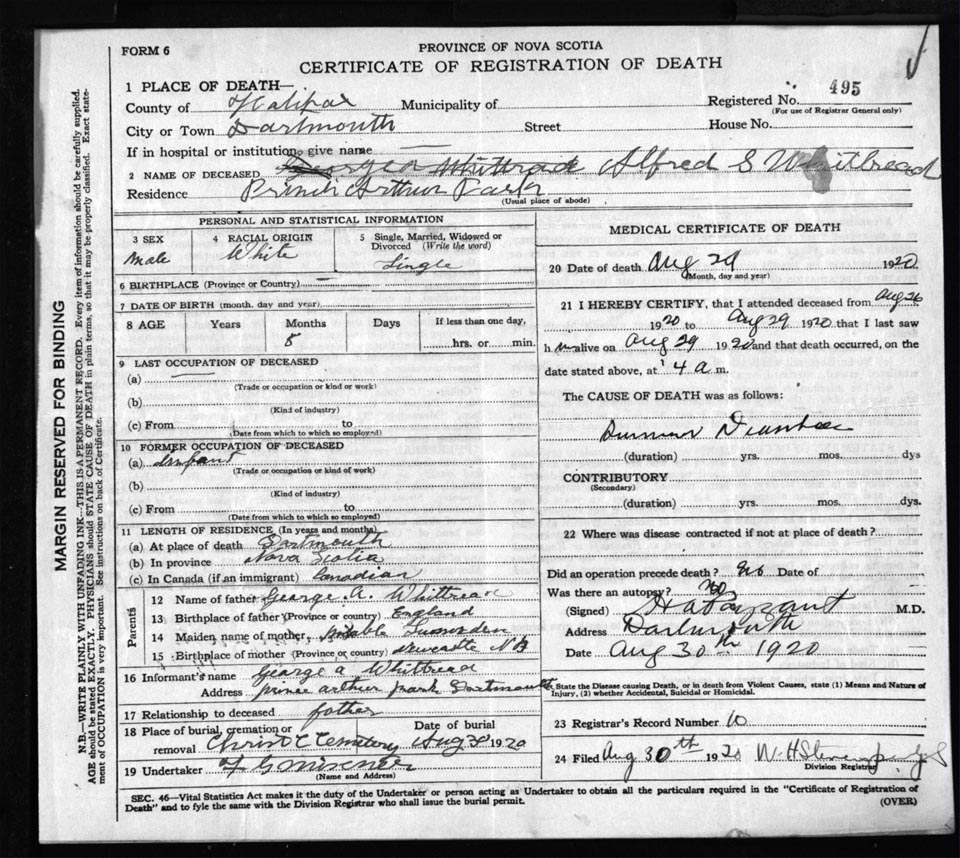 FORM 6
PROVINCE OF NOVA SCOTIA
CERTIFICATE OF REGISTRATION OF DEATH
1 PLACE OF DEATH—
County of Halifax Municipality of Registered No. 495
(For use of Registrar General only)
City or Town Dartmouth Street House No.
If in hospital or institution, give name
2 NAME OF DECEASED George A Whittread Alfred S Whitbread
Residence Prince Arthur Park
(Usual place of abode)
PERSONAL AND STATISTICAL INFORMATION
3 SEX Male
4 RACIAL ORIGIN White
5 Single, Married, Widowed or Divorced (Write the word) Single
6 BIRTHPLACE (Province or Country)
7 DATE OF BIRTH (month, day and year)
8 AGE Years Months Days If less than one day,
5 hrs. or min.
9 LAST OCCUPATION OF DECEASED
(a)
(Trade or occupation or kind or work)
(b)
(Kind of industry)
(c) From to
(Date from which to which so employed)
10 FORMER OCCUPATION OF DECEASED
(a) Infant
(Trade or occupation or kind of work)
(b)
(Kind of industry)
(c) From to
(Date from which to which so employed)
11 LENGTH OF RESIDENCE (In years and months)
(a) At place of death Dartmouth
(b) In province Nova Scotia
(c) In Canada (if an immigrant) Canadian
Parents
12 Name of father George A. Whittread
13 Birthplace of father (Province or country) England
14 Maiden name of mother
15 Birthplace of mother (Province or country) Newcastle NB
16 Informant's name George A Whittread
Address Prince Arthur Park Dartmouth
17 Relationship to deceased father
18 Place of burial, cremation or removal Christ C Cemetery Date of burial Aug 30 1920
19 Undertaker
(Name and Address)
MEDICAL CERTIFICATE OF DEATH
20 Date of death Aug 29 1920
(Month, day and year)
21 I HEREBY CERTIFY, that I attended deceased from Aug 26
1920 to Aug 29 1920 that I last saw
h m alive on Aug 29 1920 and that death occurred, on the
date stated above, at 4 a m.
The CAUSE OF DEATH was as follows:
Summer Diarrhoea
(duration) yrs. mos. dys
CONTRIBUTORY
(Secondary)
(duration) yrs. mos. dys.
22 Where was disease contracted if not at place of death?
Did an operation precede death? No Date of
Was there an autopsy? No
(Signed) M.D.
Address Dartmouth
Date Aug 30th 1920
State the Disease causing Death, or in death from Violent Causes, state (1) Means and Nature of
Injury, (2) whether Accidental, Suicidal or Homicidal.
23 Registrar's Record Number 10
24 Filed Aug 30th 1920
Division Registrar
SEC. 46—Vital Statistics Act makes it the duty of the Undertaker or person acting as Undertaker to obtain all the particulars required in the "Certificate of Registration of
Death" and to fyle the same with the Division Registrar who shall issue the burial permit.
(OVER)
MARGIN RESERVED FOR BINDING
N.B.—WRITE PLAINLY WITH UNFADING INK—THIS IS A PERMANENT RECORD. Every item of information should be carefully supplied.
AGE should be stated EXACTLY. PHYSICIANS should STATE CAUSE OF DEATH in plain terms, so that it may be properly classified. Exact state-
ment of OCCUPATION is very important. See instructions on back of Certificate.